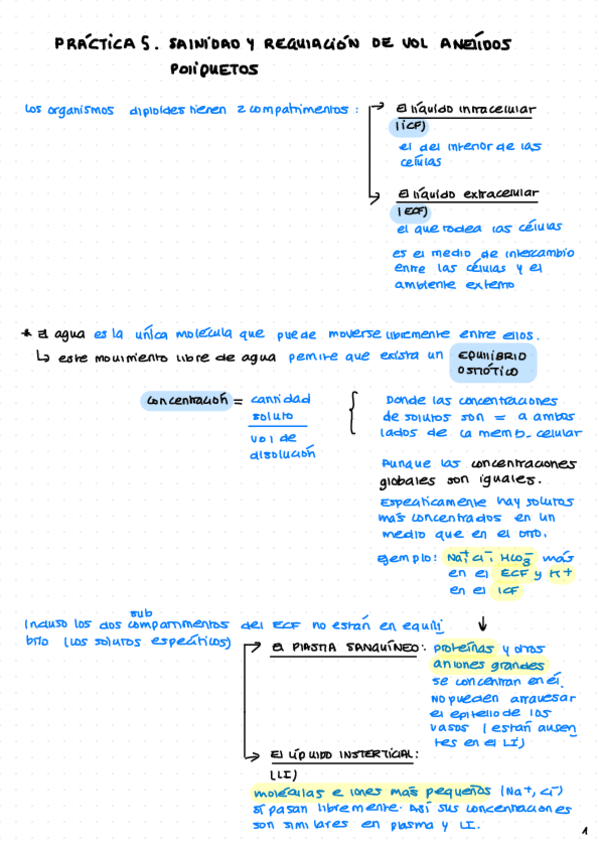 PRÁCTICA 5. SAINIDAD Y REGUIACIÓN DE VOL ANELÍDOS
POLIQUETOS
Los organismos diploides tienen 2 compatrimentos:
El líquido intracelular
(ICF)
el del interior de las
células
El líquido extracelular
(ECF)
el que rodea las células
es el medio de intercambio
entre las células y el
ambiente externo
* El agua es la única molécula que puede moverse libremente entre ellos.
↳ este movimiento libre de agua permite que exista un EQUILIBRIO
OSMÓTICO
concentración = cantidad
soluto
vol de
disolución
Donde las concentraciones
de solutos son = a ambos
lados de la memb. celular
Aunque las concentraciones
globales son iguales.
Específicamente hay solutos
más concentrados en un
medio que en el otro.
ejemplo: Na+, Cl-, HCO3- más
en el ECF y K+
en el ICF
sub
Incluso los dos compartimentos del ECF no están en equili
brio (los solutos específicos)
El PLASMA SANGUÍNEO:
proteínas y otros
aniones grandes
se concentran en él.
NO pueden atravesar
el epitelio de los
vasos (están ausen
tes en el LI)
El LÍQUIDO INSTERTICIAL:
(LI)
moléculas e iones más pequeños (Na+, Cl-)
sí pasan libremente. Así sus concentraciones
son similares en plasma y LI.
1